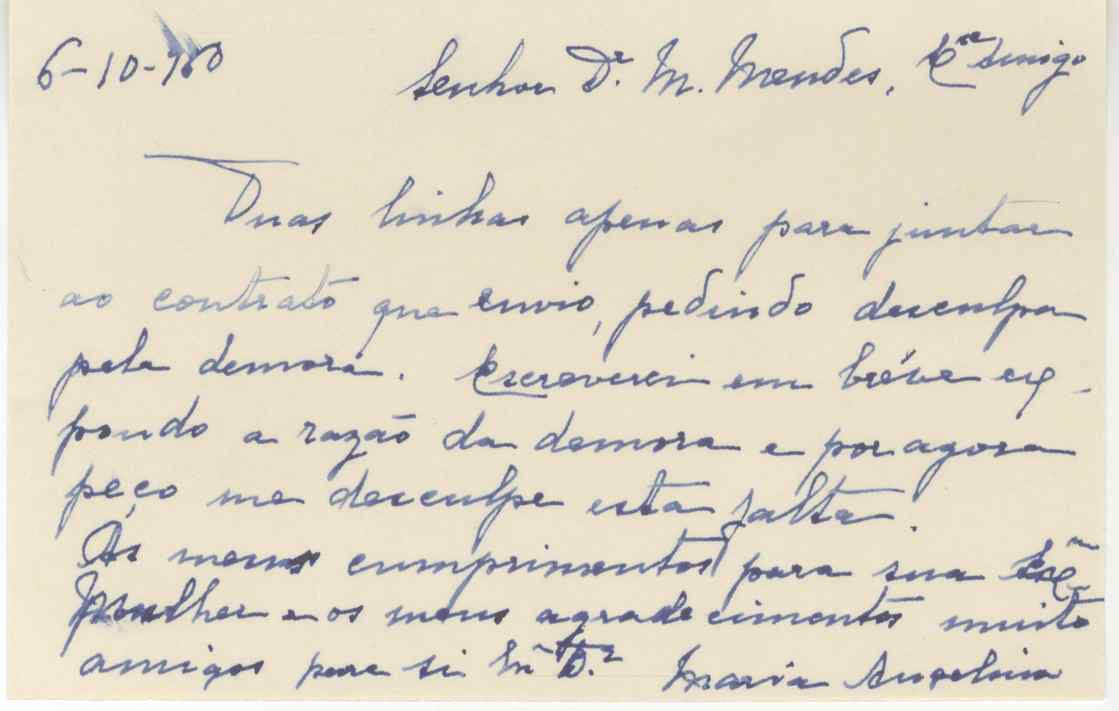 6-10-
Senhor Dr. M. Mendes, Exmo Amigo
Duas linhas apenas para juntar
ao contrato que envio, pedindo desculpa
pela demora. Escreverei em bréve ex-
pondo a razão da demora e por agora
peço me desculpe esta falta.
Os meus cumprimentos para sua Exma
Mulher e os meus agradecimentos muito
amigos para si Sr. Dr. Maria Angelina